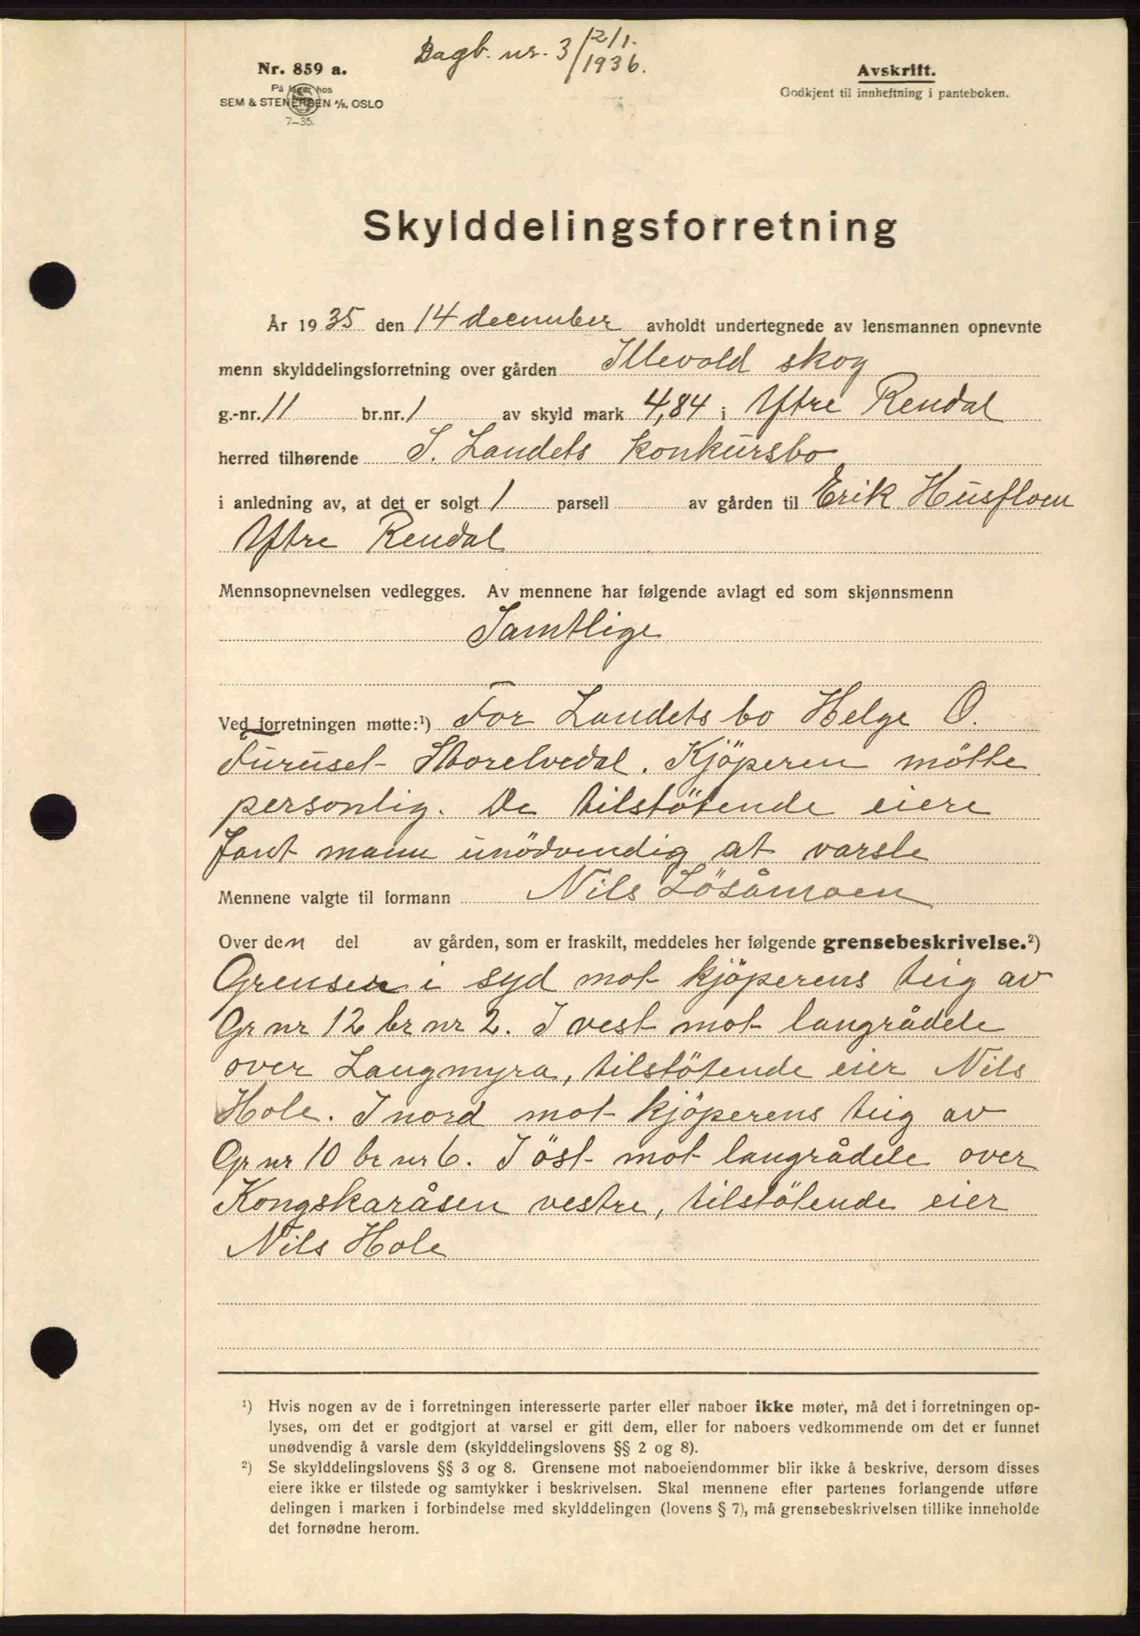 Dagb. nr. 3 / 2/1. 1936.
Nr. 859 a.
På lager hos
SEM & STENERSEN A/S, OSLO
7–35.
Avskrift.
Godkjent til innheftning i panteboken.
Skylddelingsforretning
År 1935 den 14 december avholdt undertegnede av lensmannen opnevnte
menn skylddelingsforretning over gården Illevold skog
g.-nr. 11 br.nr. 1 av skyld mark 4,84 i Ytre Rendal
herred tilhørende S. Landets konkursbo
i anledning av, at det er solgt 1 parsell av gården til Erik Husfloen
Ytre Rendal
Mennsopnevnelsen vedlegges. Av mennene har følgende avlagt ed som skjønnsmenn
Samtlige
Ved forretningen møtte:¹) For Landets bo Helge O.
Furuset Storelvedal. Kjöperen mötte
personlig. De tilstötende eiere
fant mann unödvendig at varsle
Mennene valgte til formann Nils Lösåmoen
Over den del av gården, som er fraskilt, meddeles her følgende grensebeskrivelse.²)
Grensen i syd mot kjöperens teig av
Gr nr 12 br nr 2. I vest mot langrådele
over Langmyra, tilstötende eier Nils
Hole. I nord mot kjöperens teig av
Gr nr 10 br nr 6. I öst mot langrådele over
Kongskaråsen vestre, tilstötende eier
Nils Hole
¹) Hvis nogen av de i forretningen interesserte parter eller naboer ikke møter, må det i forretningen op-
lyses, om det er godtgjort at varsel er gitt dem, eller for naboers vedkommende om det er funnet
unødvendig å varsle dem (skylddelingslovens §§ 2 og 8).
²) Se skylddelingslovens §§ 3 og 8. Grensene mot naboeiendommer blir ikke å beskrive, dersom disses
eiere ikke er tilstede og samtykker i beskrivelsen. Skal mennene efter partenes forlangende utføre
delingen i marken i forbindelse med skylddelingen (lovens § 7), må grensebeskrivelsen tillike inneholde
det fornødne herom.